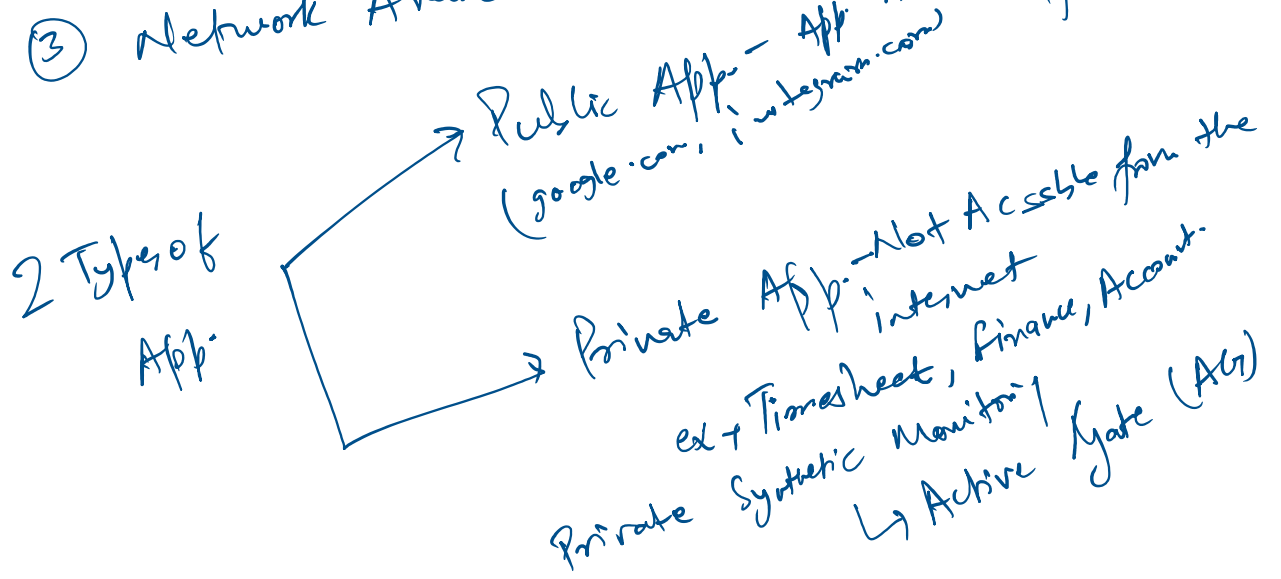 ③ Network
Public App. - App
(google.com, integram.com)
2 Types of
App.
Private App. - Not Acssble from the
internet
ex → Timesheet, Finance, Account.
Private Synthetic Monitoring
↳ Active Gate (AG)